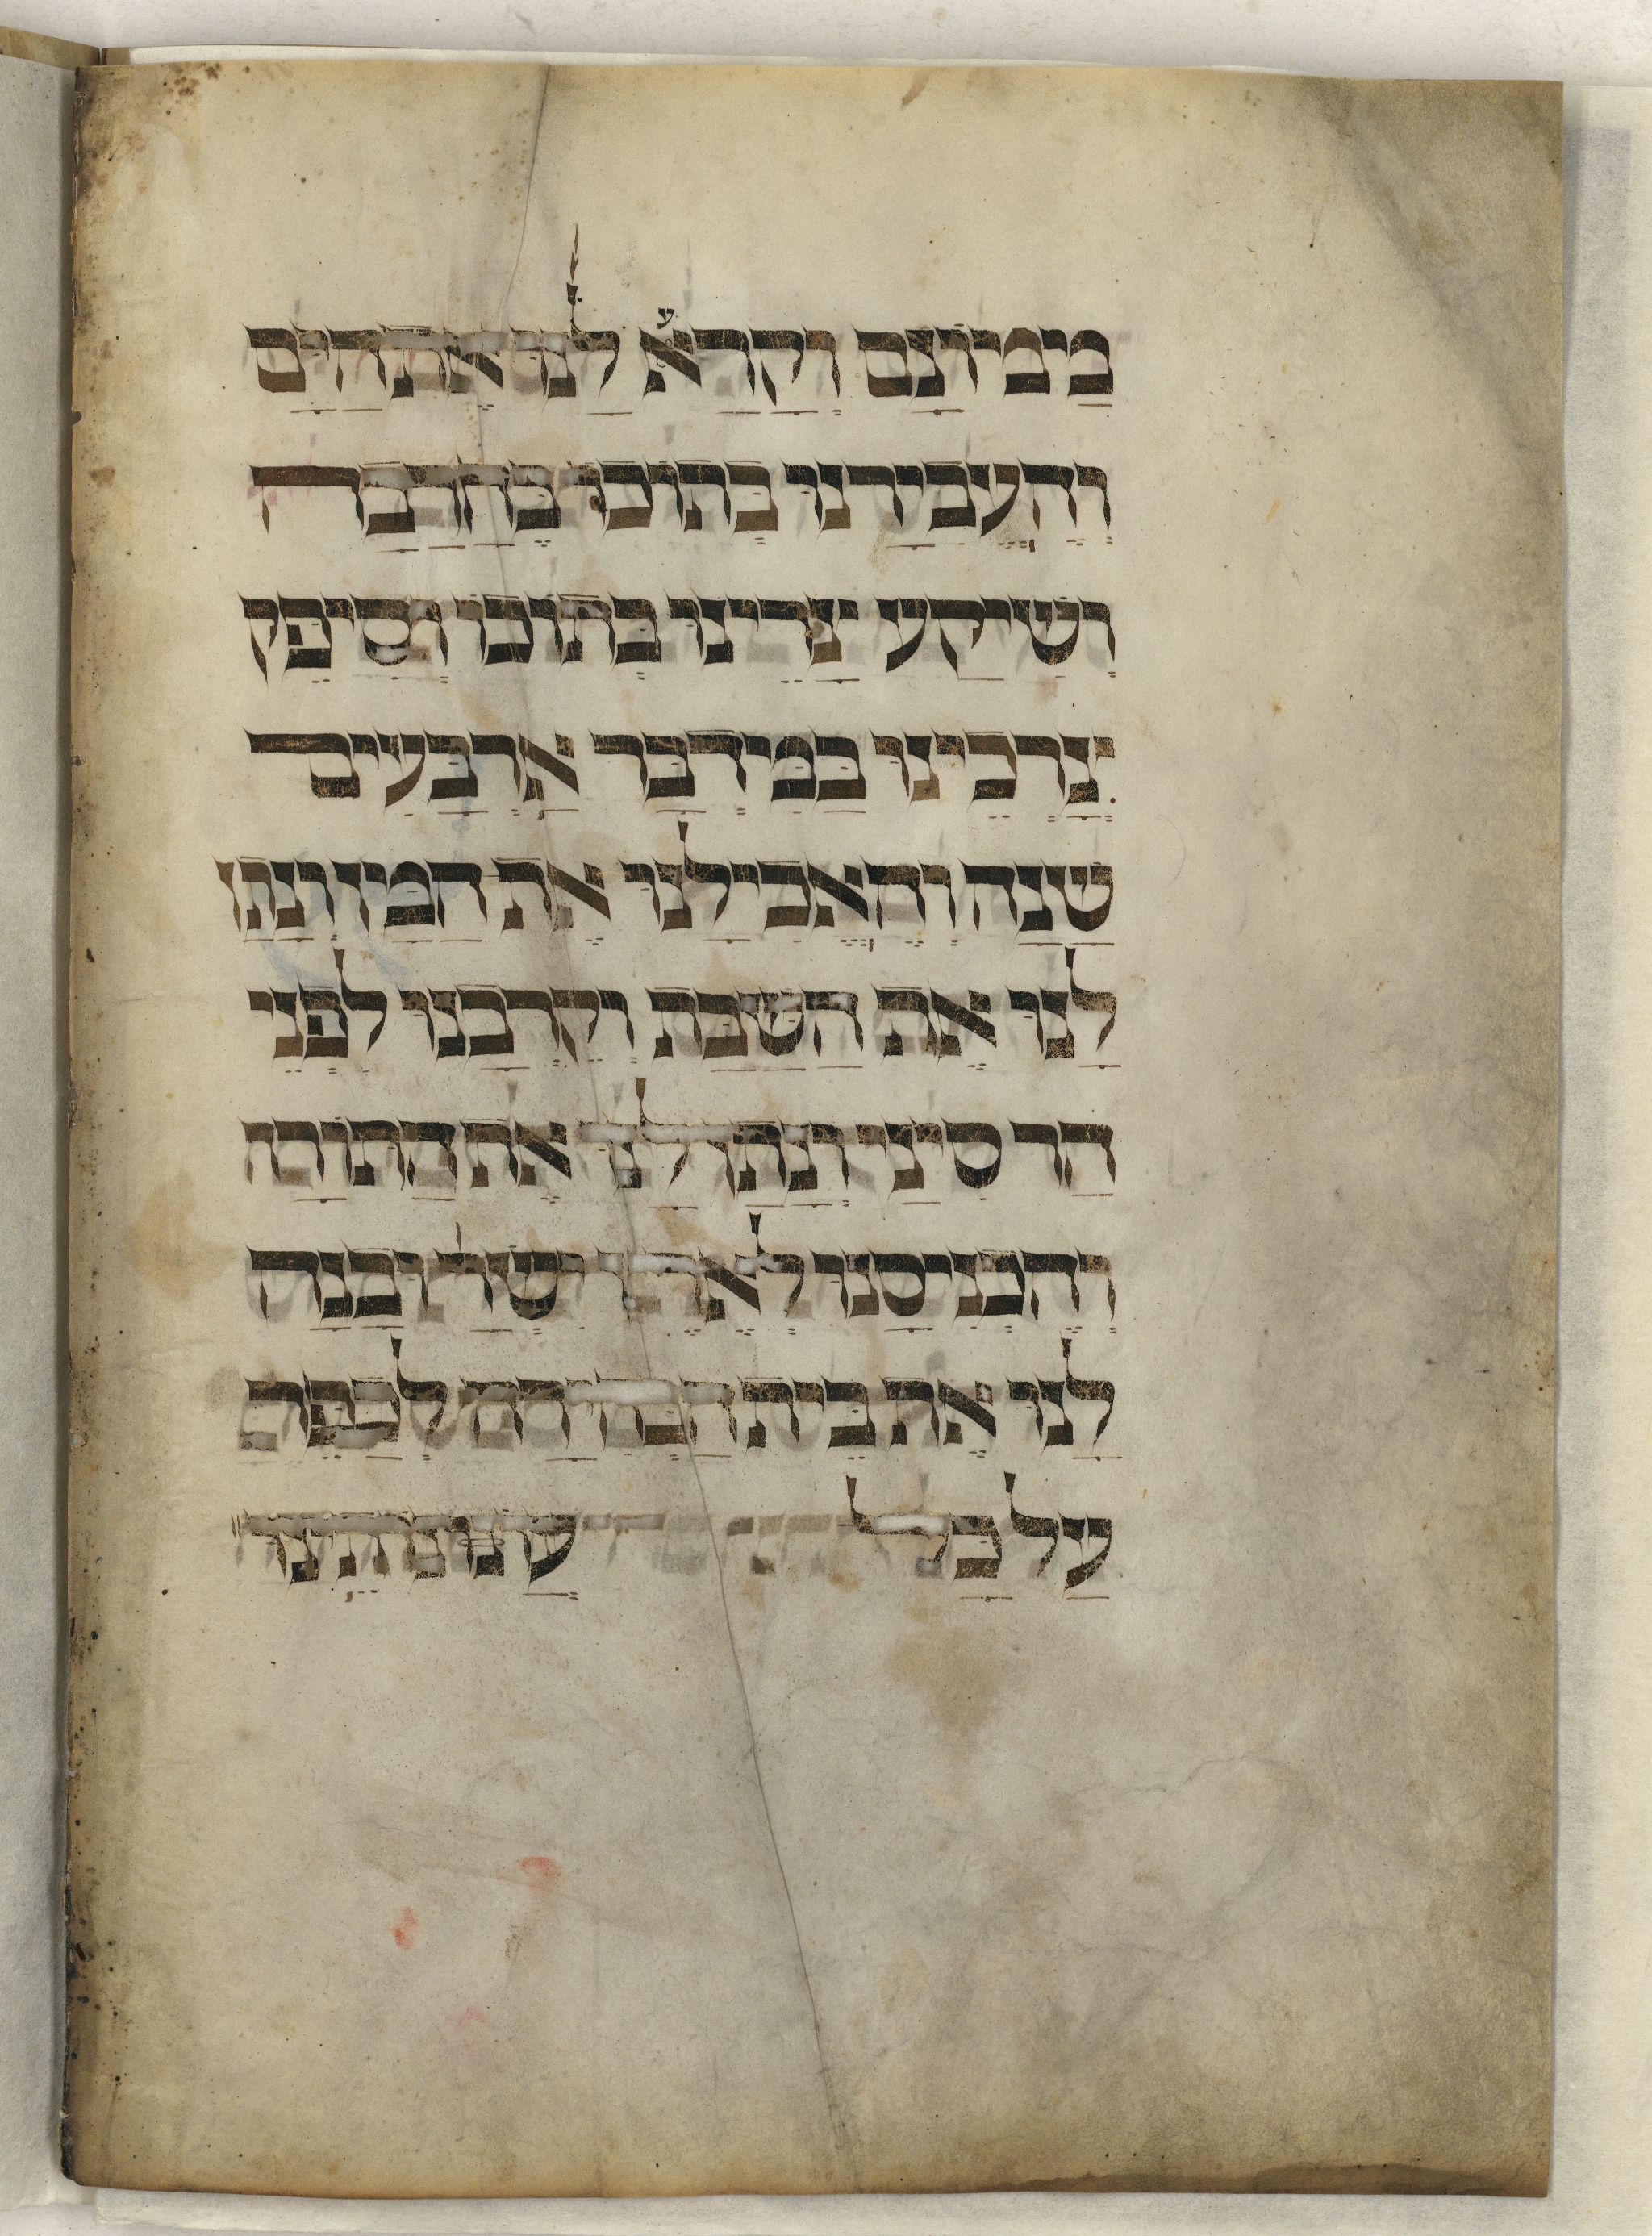 מַימיוֹנָם וְקָרַא ע לַנוּ אֵת הַיָם
וְהֶעֱבִירַנוּ בְּתוֹכוֹ בֶּחָרַבָה
וְשִׁיקַע צָרֵינוּ בְּתוֹכוֹ וְסִיפֵּק
צָרְכֵינוּ בַּמִידְבָּר אַרְבָּעִים
שַׁנָה וְהֶאֱכִילַנוּ אֵת הַמָן וְנָתַן
לַנוּ אֵת הַשַׁבָּת וְקֵרְבָנוּ לִפְנֵי
הַר סִינַי וְנָתַן לַנוּ אֵת הַתוֹרָה
וְהֶכְנִיסָנוּ לְאֶרֶץ יִשְׂרָ וּבָנָה
לָנוּ אֵת בֵּית הַבְּחִירָה לְכַפֵּר
עַל כָּל עֲוֹנוֹתֵינוּ